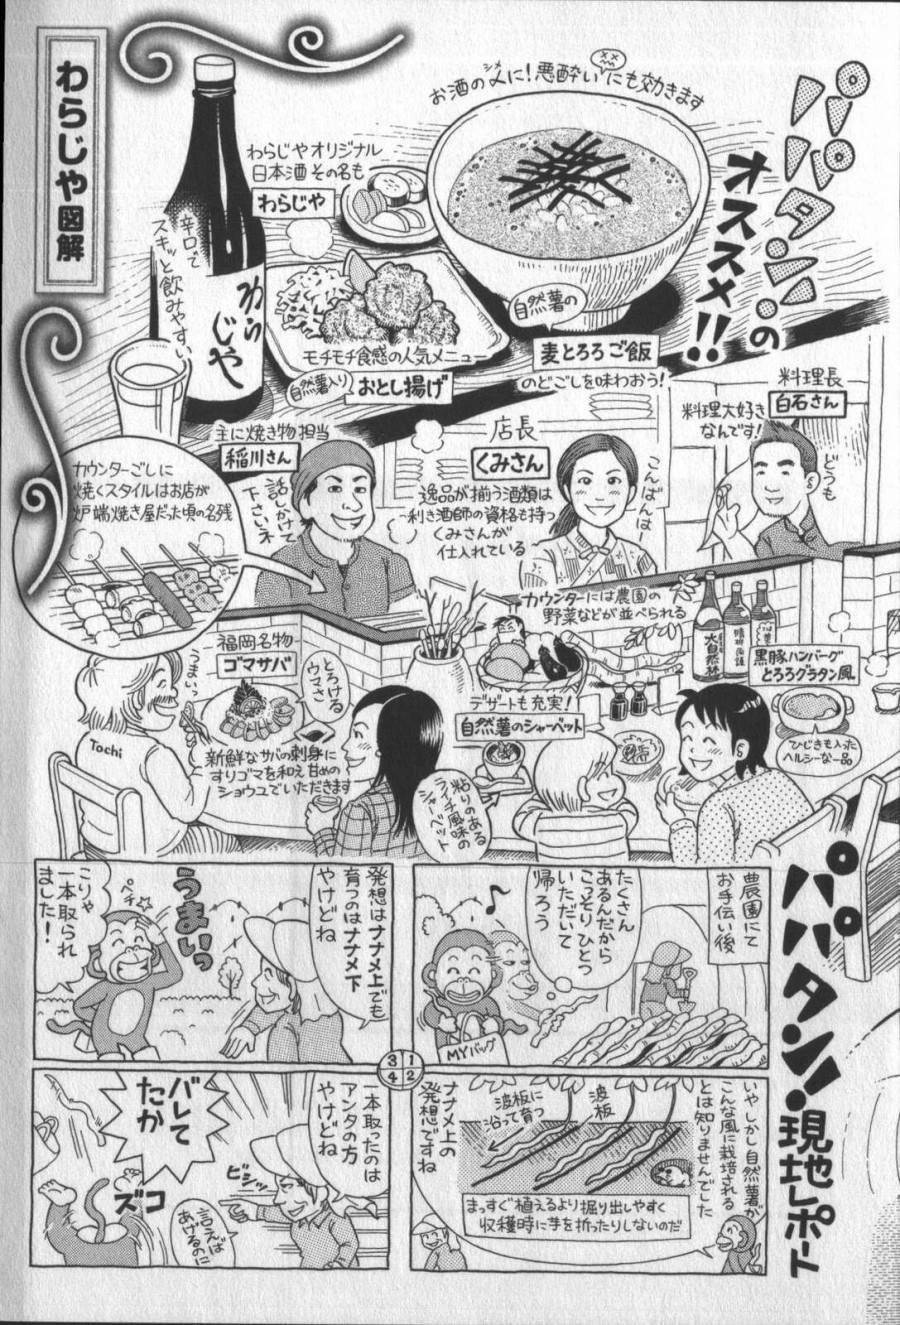 わらじや図解
パパタンのオススメ!!
お酒の〆に!悪酔いにも効きます
シメ
わらじやオリジナル
日本酒 その名も
わらじや
辛口で
スキッと飲みやすい
わらじや
自然薯の
麦とろろご飯
のどごしを味わおう!
モチモチ食感の人気メニュー
自然薯入り
おとし揚げ
料理長
白石さん
料理大好き
なんです!
どうも
店長
くみさん
こんばんはー
逸品が揃う酒類は
利き酒師の資格も持つ
くみさんが
仕入れている
主に焼き物担当
稲川さん
話しかけて
下さいネ
カウンターごしに
焼くスタイルはお店が
炉端焼き屋だった頃の名残
カウンターには農園の
野菜などが並べられる
大自然林
黒豚ハンバーグ
とろろグラタン風
ひじきも入った
ヘルシーな一品
デザートも充実!
自然薯のシャーベット
粘りのある
ライチ風味の
シャーベット
福岡名物
ゴマサバ
とろける
ウマさ
新鮮なサバの刺身に
すりゴマを和え甘めの
ショウユでいただきます
うまいっ
Tochi
パパタン!現地レポート
農園にて
お手伝い後
たくさん
あるんだから
こっそりひとつ
いただいて
帰ろう
MYバッグ
1
2
3
4
いやしかし自然薯が
こんな風に栽培される
とは知りませんでした
波板
波板に
沿って育つ
まっすぐ植えるより掘り出しやすく
収穫時に芋を折ったりしないのだ
ナナメ上の
発想ですね
発想はナナメ上でも
育つのはナナメ下
やけどね
うまいっ
ペチ
こりゃ
一本取られ
ました!
一本取ったのは
アンタの方
やけどね
ビシッ
バレて
たか
ズコ
言えば
あげるのに